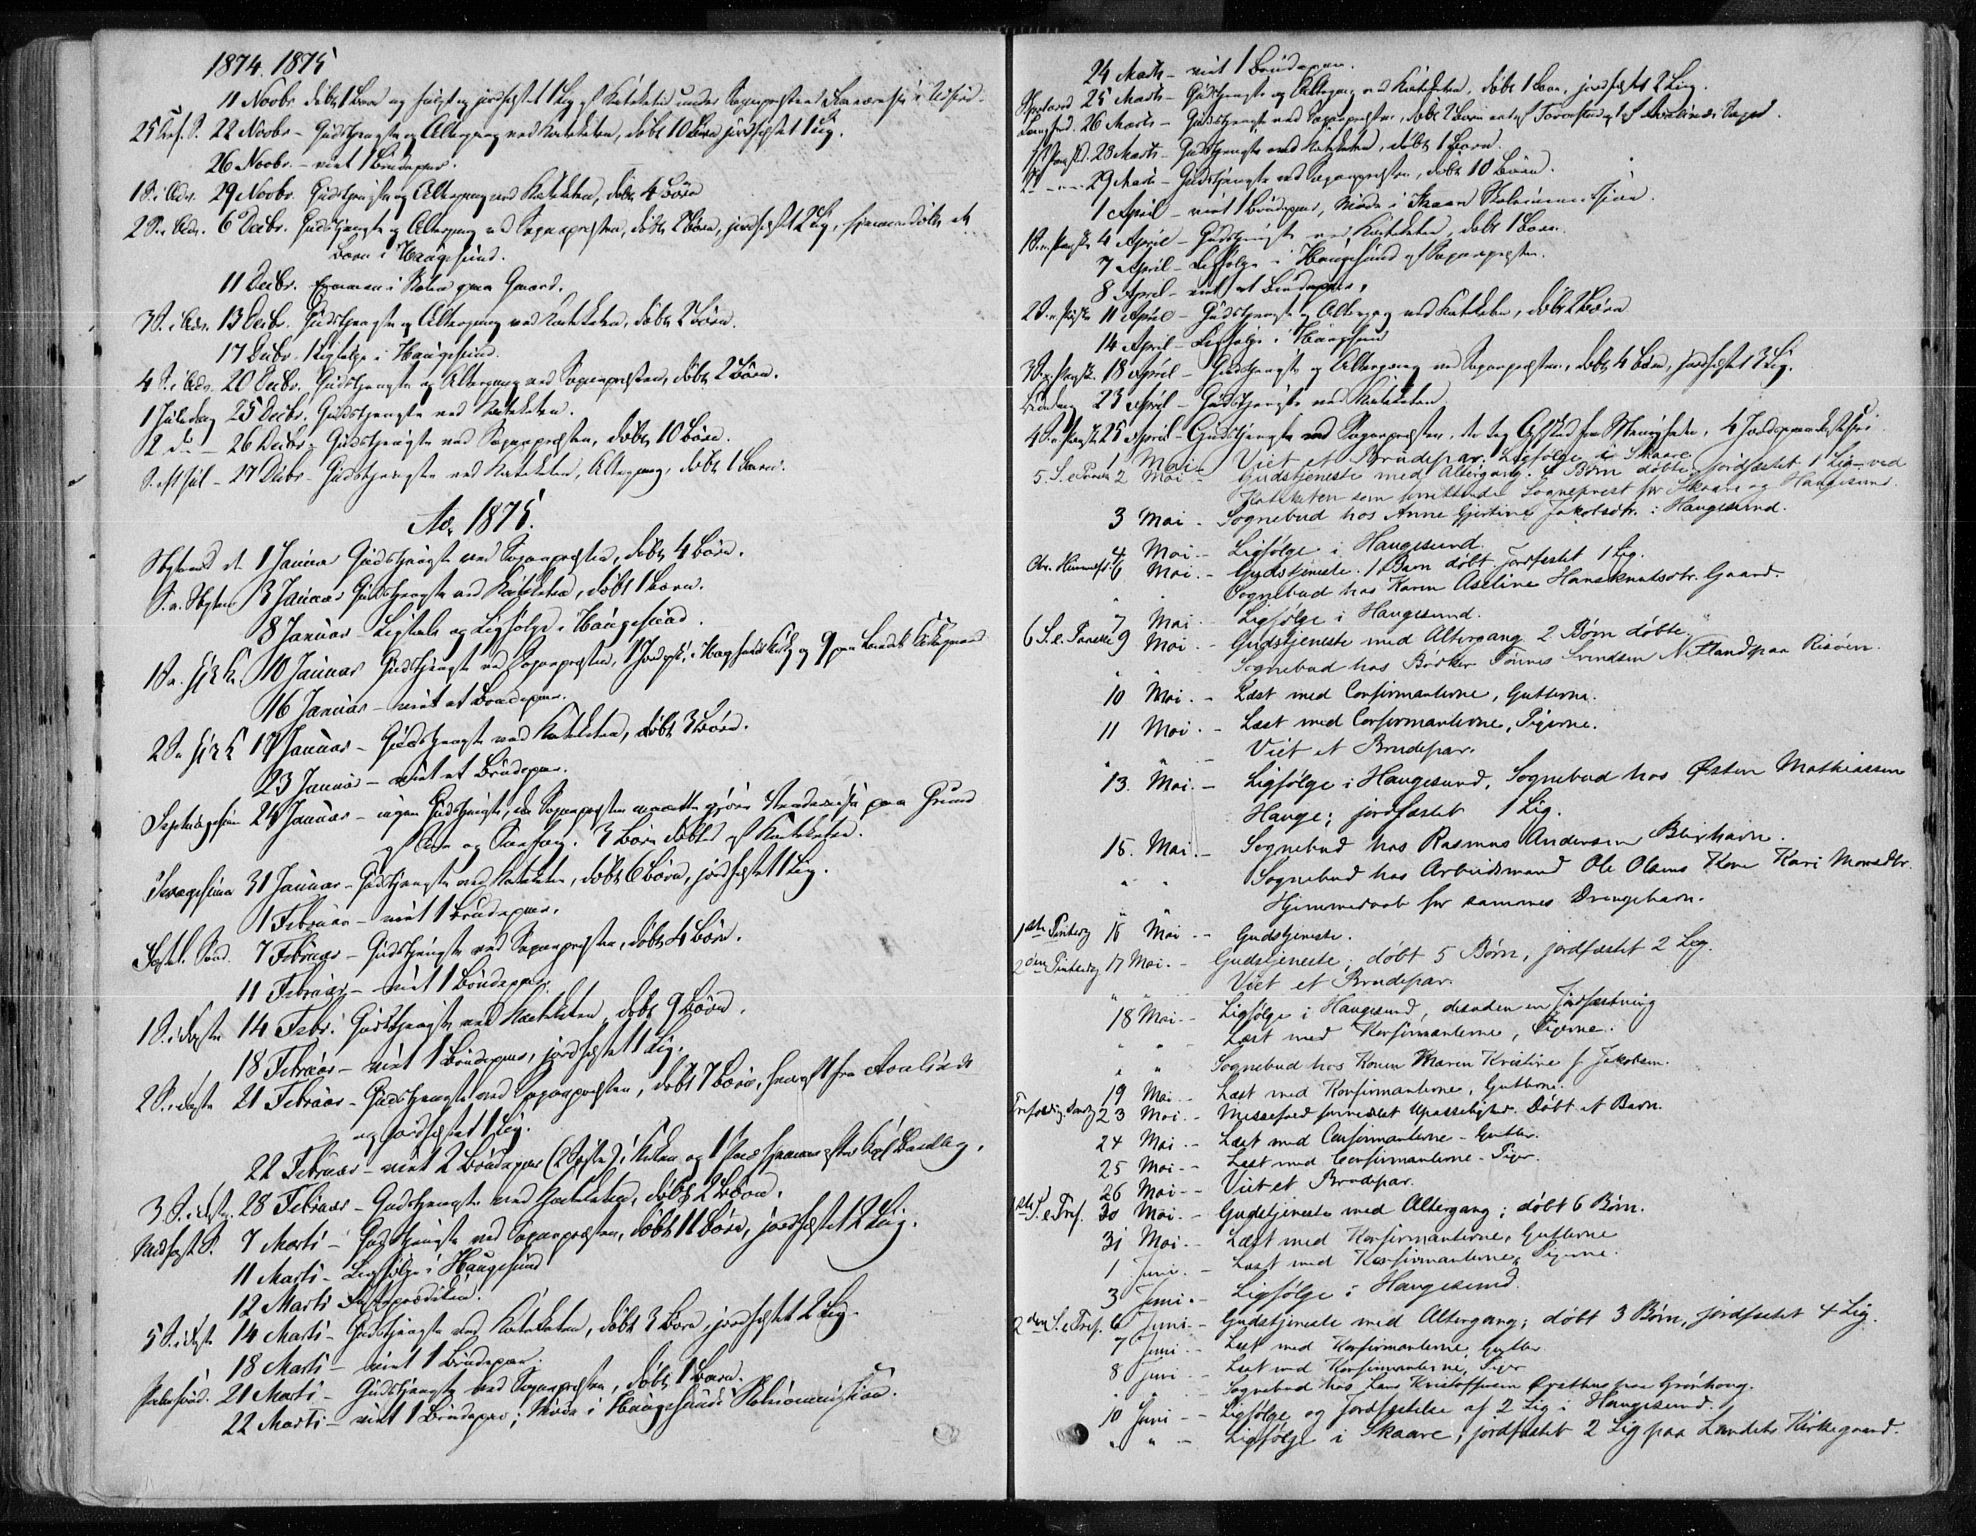 1874. 1875
11 Novbr. døbt 1 Barn og jordfæstet 1 Lig af Kateketen under Sognepræstens Fraværelse i
25 Tref. S. 22 Novbr. - Gudstjeneste og Altergang ved Kateketen, døbt 10 Børn jordfæstet 1 Lig.
26 Novbr. - viet 1 Brudepar.
1 S. i Adv. 29 Novbr. Gudstjeneste og Altergang ved Kateketen, døbt 4 Børn
2 S. i Adv. 6 Decbr. Gudstjeneste og Altergang ved Sognepræsten, døbt 2 Børn, jordfæstet 2 Lig, hjemmedøbt et
Barn i Haugesund.
11 Decbr. Examen i Skolen paa Gaard.
3 S. i Adv. 13 Decbr. Gudstjeneste og Altergang ved Kateketen, døbt 2 Børn.
17 Decbr. Ligfølge i Haugesund.
4 S. i Adv. 20 Decbr. Gudstjeneste og Altergang ved Sognepræsten, døbt 2 Børn.
1 Juledag 25 Decbr. Gudstjeneste ved Kateketen.
2 d. - 26 Decbr. Gudstjeneste ved Sognepræsten, døbt 10 Børn.
S. eft Jul - 27 Decbr. Gudstjeneste ved Kateketen, Altergang, døbt 1 Barn.
Ao. 1875.
Nytaarsd. d. 1 Januar Gudstjeneste ved Sognepræsten, døbt 4 Børn.
S. e. Nytaar 3 Januar Gudstjeneste ved Kateketen, døbt 1 Barn.
8 Januar - Ligtale og Ligfølge i Haugesund.
1 S. e. H3K. 10 Januar Gudstjeneste ved Sognepræsten, 1 Jordf. i Haugesunds Kirke og 9 paa Landets Kirkegaard
16 Januar - viet et Brudepar.
2 S. e. H3K 17 Januar - Gudstjeneste ved Kateketen, døbt 3 Børn.
23 Januar - viet et Brudepar.
Septuagesima 24 Januar - ingen Gudstjeneste, da Sognepræsten maatte paa Grund
af og. 3 Børn døbtes af Kateketen.
Sexagesima 31 Januar - Gudstjeneste ved Kateketen, døbt 6 Børn, jordfæstet 1 Lig.
1 Februar - viet 1 Brudepar.
Fastel. Sønd. 7 Februar - Gudstjeneste ved Sognepræsten, døbt 4 Børn.
11 Februar - viet 1 Brudepar.
1 S. i Faste 14 Febr. Gudstjeneste ved Kateketen, døbt 9 Børn.
18 Februar - viet 1 Brudepar, jordfæstet 1 Lig.
2 S. i Faste 21 Februar - Gudstjeneste ved Sognepræsten, døbt 7 Børn, heraf 1 fra
og jordfæstet 1 Lig.
22 Februar - viet 2 Brudepar i Kirken og 1 Par hjemme
3 S. i Faste. 28 Februar - Gudstjeneste ved Kateketen, døbt 2 Børn.
Midfast. S. 7 Marts - Gudstjeneste ved Sognepræsten, døbt 11 Børn, jordfæstet 2 Lig.
11 Marts - Ligfølge i Haugesund
12 Marts Fasteprædiken.
5 S. i Faste 14 Marts - Gudstjeneste ved Kateketen, døbt 3 Børn, jordfæstet 2 Lig.
18 Marts - viet 1 Brudepar.
Palmesønd. 21 Marts - Gudstjeneste ved Sognepræsten, døbt 1 Barn.
22 Marts - viet 1 Brudepar; Møde i Haugesunds Skolekommission.
24 Marts - viet 1 Brudepar.
Skjærtorsd 25 Marts - Gudstjeneste og Altergang ved Kateketen, døbt 1 Barn, jordfæstet 2 Lig.
Langfred. 26 Marts - Gudstjeneste ved Sognepræsten, døbt 2 Børn
1st Paaskd. 28 Marts - Gudstjeneste ved Kateketen, døbt 1 Barn.
29 Marts - Gudstjeneste ved Sognepræsten, døbt 10 Børn.
1 April - viet 1 Brudepar, Møde i Skaare Skolekommission.
1 S. e. Paaske 4 April - Gudstjeneste ved Kateketen, døbt 1 Barn.
7 April - Ligfølge i Haugesund af Sognepræsten.
8 April - viet et Brudepar.
2 S. e. Paaske 11 April - Gudstjeneste og Altergang ved Kateketen, døbt 2 Børn
14 April - Ligfølge i Haugesund
3 S. e. Paaske. 18 April - Gudstjeneste og Altergang ved Sognepræsten, døbt 4 Børn, jordfæstet 3 Lig.
Bededag 23 April - Gudstjeneste ved Kateketen.
4 S. e. Paaske 25 April - Gudstjeneste ved Sognepræsten, der tog Afsked fra Menigheden, 4 Jordspaakastelser.
1 Mai - Viet et Brudepar. Ligfølge i Skaare
5. S. e. Paaske 2 Mai. - Gudstjeneste med Altergang. 4 Børn døbte, jordfæstet 1 Lig - ved
Kateketen som constitueret Sogneprest for Skaare og Haugesund.
3 Mai - Sognebud hos Anne Gjertine Jakobsdtr. i Haugesund.
4 Mai - Ligfølge i Haugesund.
Chr. Himmelf. 6 Mai. - Gudstjeneste. 1 Barn døbt. Jordfæstet 1 Lig.
" " Sognebud hos Karen Aseline Hanskenatsdtr. Gaard.
7 Mai - Ligfølge i Haugesund.
6 S. e. Paaske 9 Mai - Gudstjeneste med Altergang 2 Børn døbte.
" " Sognebud hos Bødker Tønnes Svendsen Netland paa Risøen.
10 Mai. - Læst med Confirmanterne, Gutterne.
11 Mai. - Læst med Confirmanterne, Pigerne.
" " - Viet et Brudepar.
13. Mai. - Ligfølge i Haugesund, Sognebud hos Østen Mathiassen
Hauge; jordfæstet 1 Lig.
15. Mai. - Sognebud hos Rasmus Andersen Blixhavn.
" " Sognebud hos Arbeidsmand Ole Olsens Kone Kari Monsdtr.
Hjemmedaab for sammes Drengebarn.
1ste Pintsedg 16 Mai - - Gudstjeneste.
2den Pintsedg 17 Mai. - Gudstjeneste, døbt 5 Børn, jordfæstet 2 Lig.
" " Viet et Brudepar.
18 Mai - - Ligfølge i Haugesund, desuden en Jordfæstning
" " - Læst med Konfirmanterne, Pigerne.
" " Sognebud hos Konen Maren Kristine f. Jakobsen.
19 Mai - Læst med Konfirmanterne, Gutterne.
Trefoldig. Søndg 23 Mai. - Messefald formedelst Upasselighed. Døbt et Barn.
24 Mai - Læst med Confirmanterne - Gutter.
25 Mai - - Læst med Confirmanterne - Piger.
26 Mai - - Viet et Brudepar.
1ste S. e Tref. 30 Mai. - Gudstjeneste med Altergang; døbt 6 Børn.
31 Mai. - Læst med Konfirmanterne, Gutterne
1 Juni. - Læst med Konfirmanterne, Pigerne.
3 Juni. - Ligfølge i Haugesund.
2den S. e Tref. 6 Juni - Gudstjeneste med Altergang; døbt 3 Børn, jordfæstet 4 Lig.
7 Juni - - Læst med Konfirmanterne, Gutter
8 Juni - - Læst med Konfirmanterne, Piger
" " - Sognebud hos Lars Kristoffersen paa Grønhaug.
10 Juni - - Ligfølge og Jordfæstelse af 2 Lig i Haugesund.
" " - Ligfølge i Skaare, jordfæstet 2 Lig paa Landets Kirkegaard.